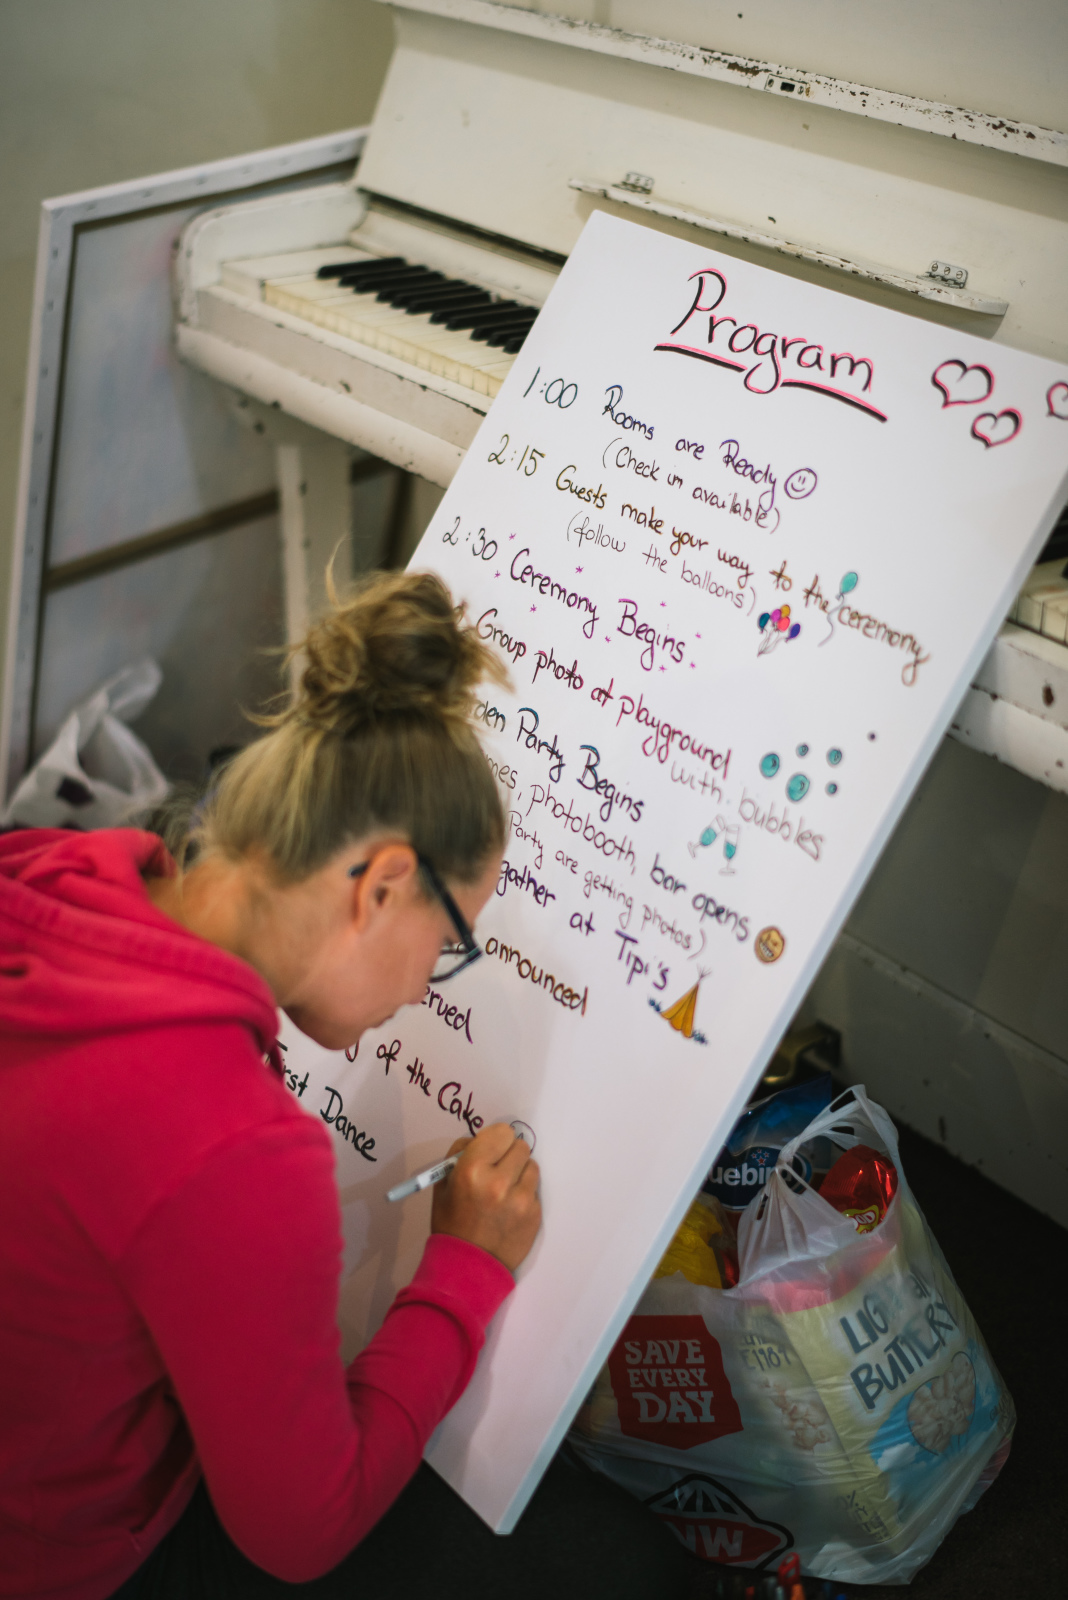 Program
1:00 Rooms are Ready
(Check in available)
2:15 Guests make your way to the ceremony
(follow the balloons)
2:30 Ceremony Begins
Group photo at playground
with bubbles
den Party Begins
mes, photobooth, bar opens
Party are getting photos)
gather at Tipi's
announced
erved
g of the Cake
irst Dance
uebir
SAVE
EVERY
DAY
LIG
BUTTERY
NW